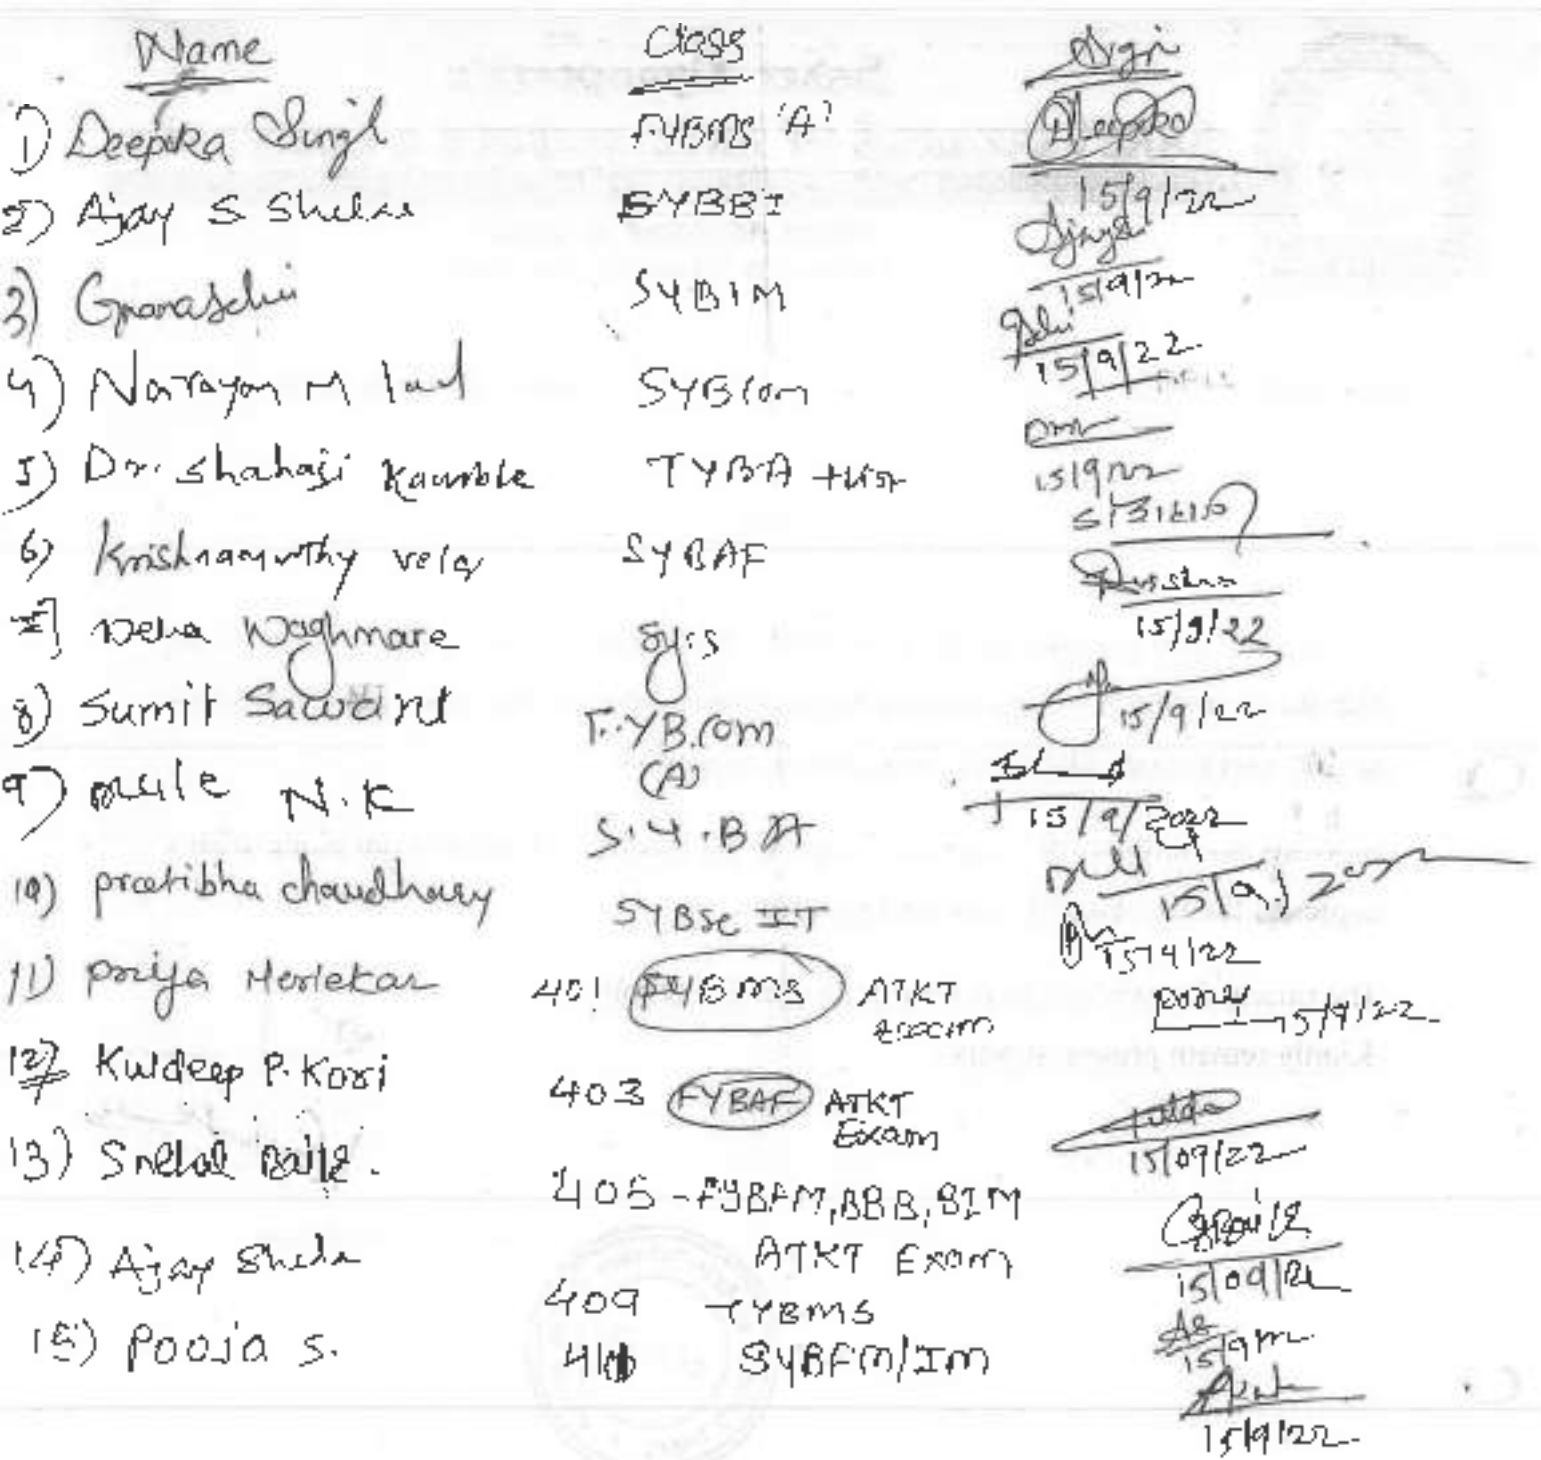 Name Class Sign
1) Deepika Singh FYBMS 'A' Deepika
15/9/22
2) Ajay S Shelar SYBBI
15/9/22
3) SYBIM
15/9/22
4) Narayan M SYBCom
15/9/22
5) Dr. Shahaji Kamble TYBA Hist
6) Krishnamurthy vela SYBAF
15/9/22
7] Neha Waghmare Sy.s
15/9/22
8) Sumit Sawant F.Y.B.Com
(A)
15/9/2022
9) mule N.K S.Y.BA
15/9/
10) pratibha chaudhary SYBSc IT
15/9/22
11) priya Herlekar 401 FYBMS ATKT
Exam
15/9/22
12) Kuldeep P. Kori 403 FYBAF ATKT
Exam
15/09/22
13) Snehal Baile. 405 - FYBFM, BBB, BIM
ATKT Exam
15/09/22
14) Ajay Shela 409 TYBMS
15/9/22
15) Pooja S. SYBFM/IM
15/9/22